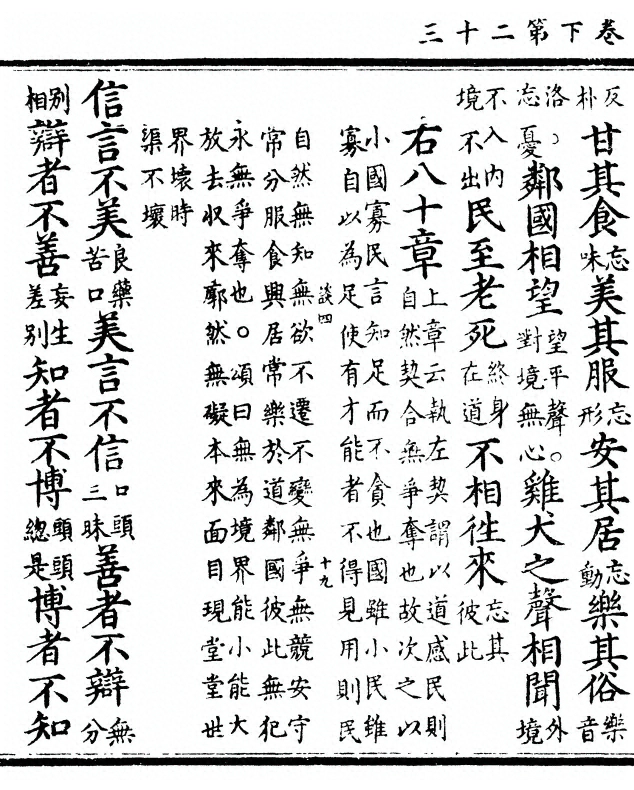 卷下第二十三
反朴甘其食忘味美其服忘形安其居忘動樂其俗樂音
洛。忘憂鄰國相望望平聲。對境無心雞犬之聲相聞外境
不入內境不出民至老死終身在道不相徃來忘其彼此
右八十章上章云執左契謂以道感民則
自然契合無爭奪也故次之以
小國寡民言知足而不貪也國雖小民雖
寡自以為足使有才能者不得見用則民
談四 十九
自然無知無欲不遷不變無爭無競安守
常分服食興居常樂於道鄰國彼此無犯
永無爭奪也。頌曰無為境界能小能大
放去收來廓然無礙本來面目現堂堂世
界壞時
渠不壞
信言不美良藥苦口美言不信口頭三昧善者不辯無分
別相辯者不善妄生差別知者不博頭頭總是博者不知